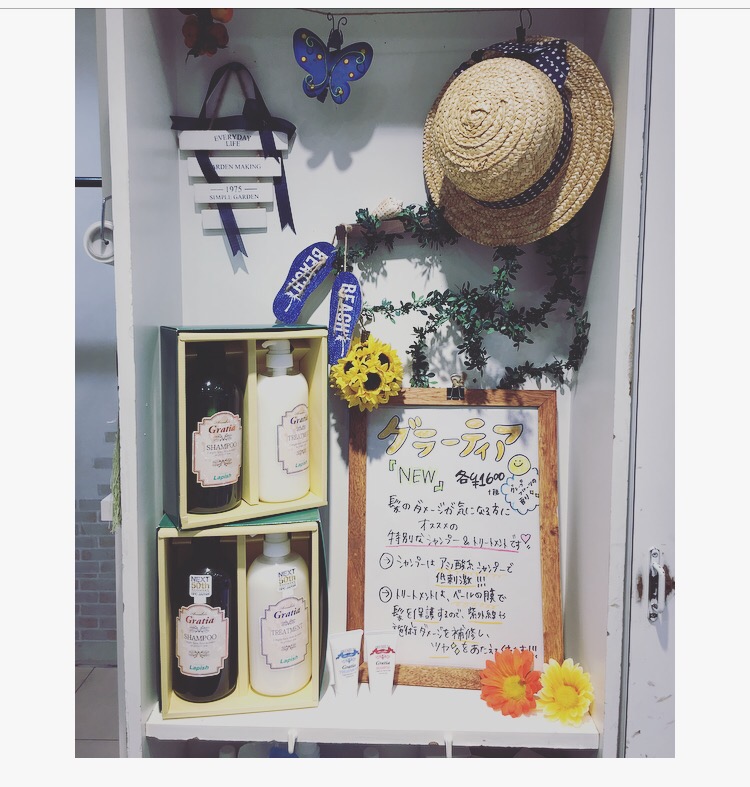 EVERYDAY
LIFE
GARDEN MAKING
1975
SIMPLE GARDEN
BEACH
BEACH
Gratia
SHAMPOO
Lapish
Gratia
TREATMENT
Lapish
グラーティア
『NEW』 各¥1600
髪のダメージが気になる方に
オススメの
特別なシャンプー&トリートメントです♡
→シャンプーはアミノ酸系シャンプーで
低刺激!!!
→トリートメントは、ベールの膜で
髪を保護するので、紫外線や
施術ダメージを補修し、
ツヤ
をあたえ
NEXT
50th
Gratia
SHAMPOO
Lapish
NEXT
50th
Gratia
TREATMENT
Lapish
Gratia
Gratia